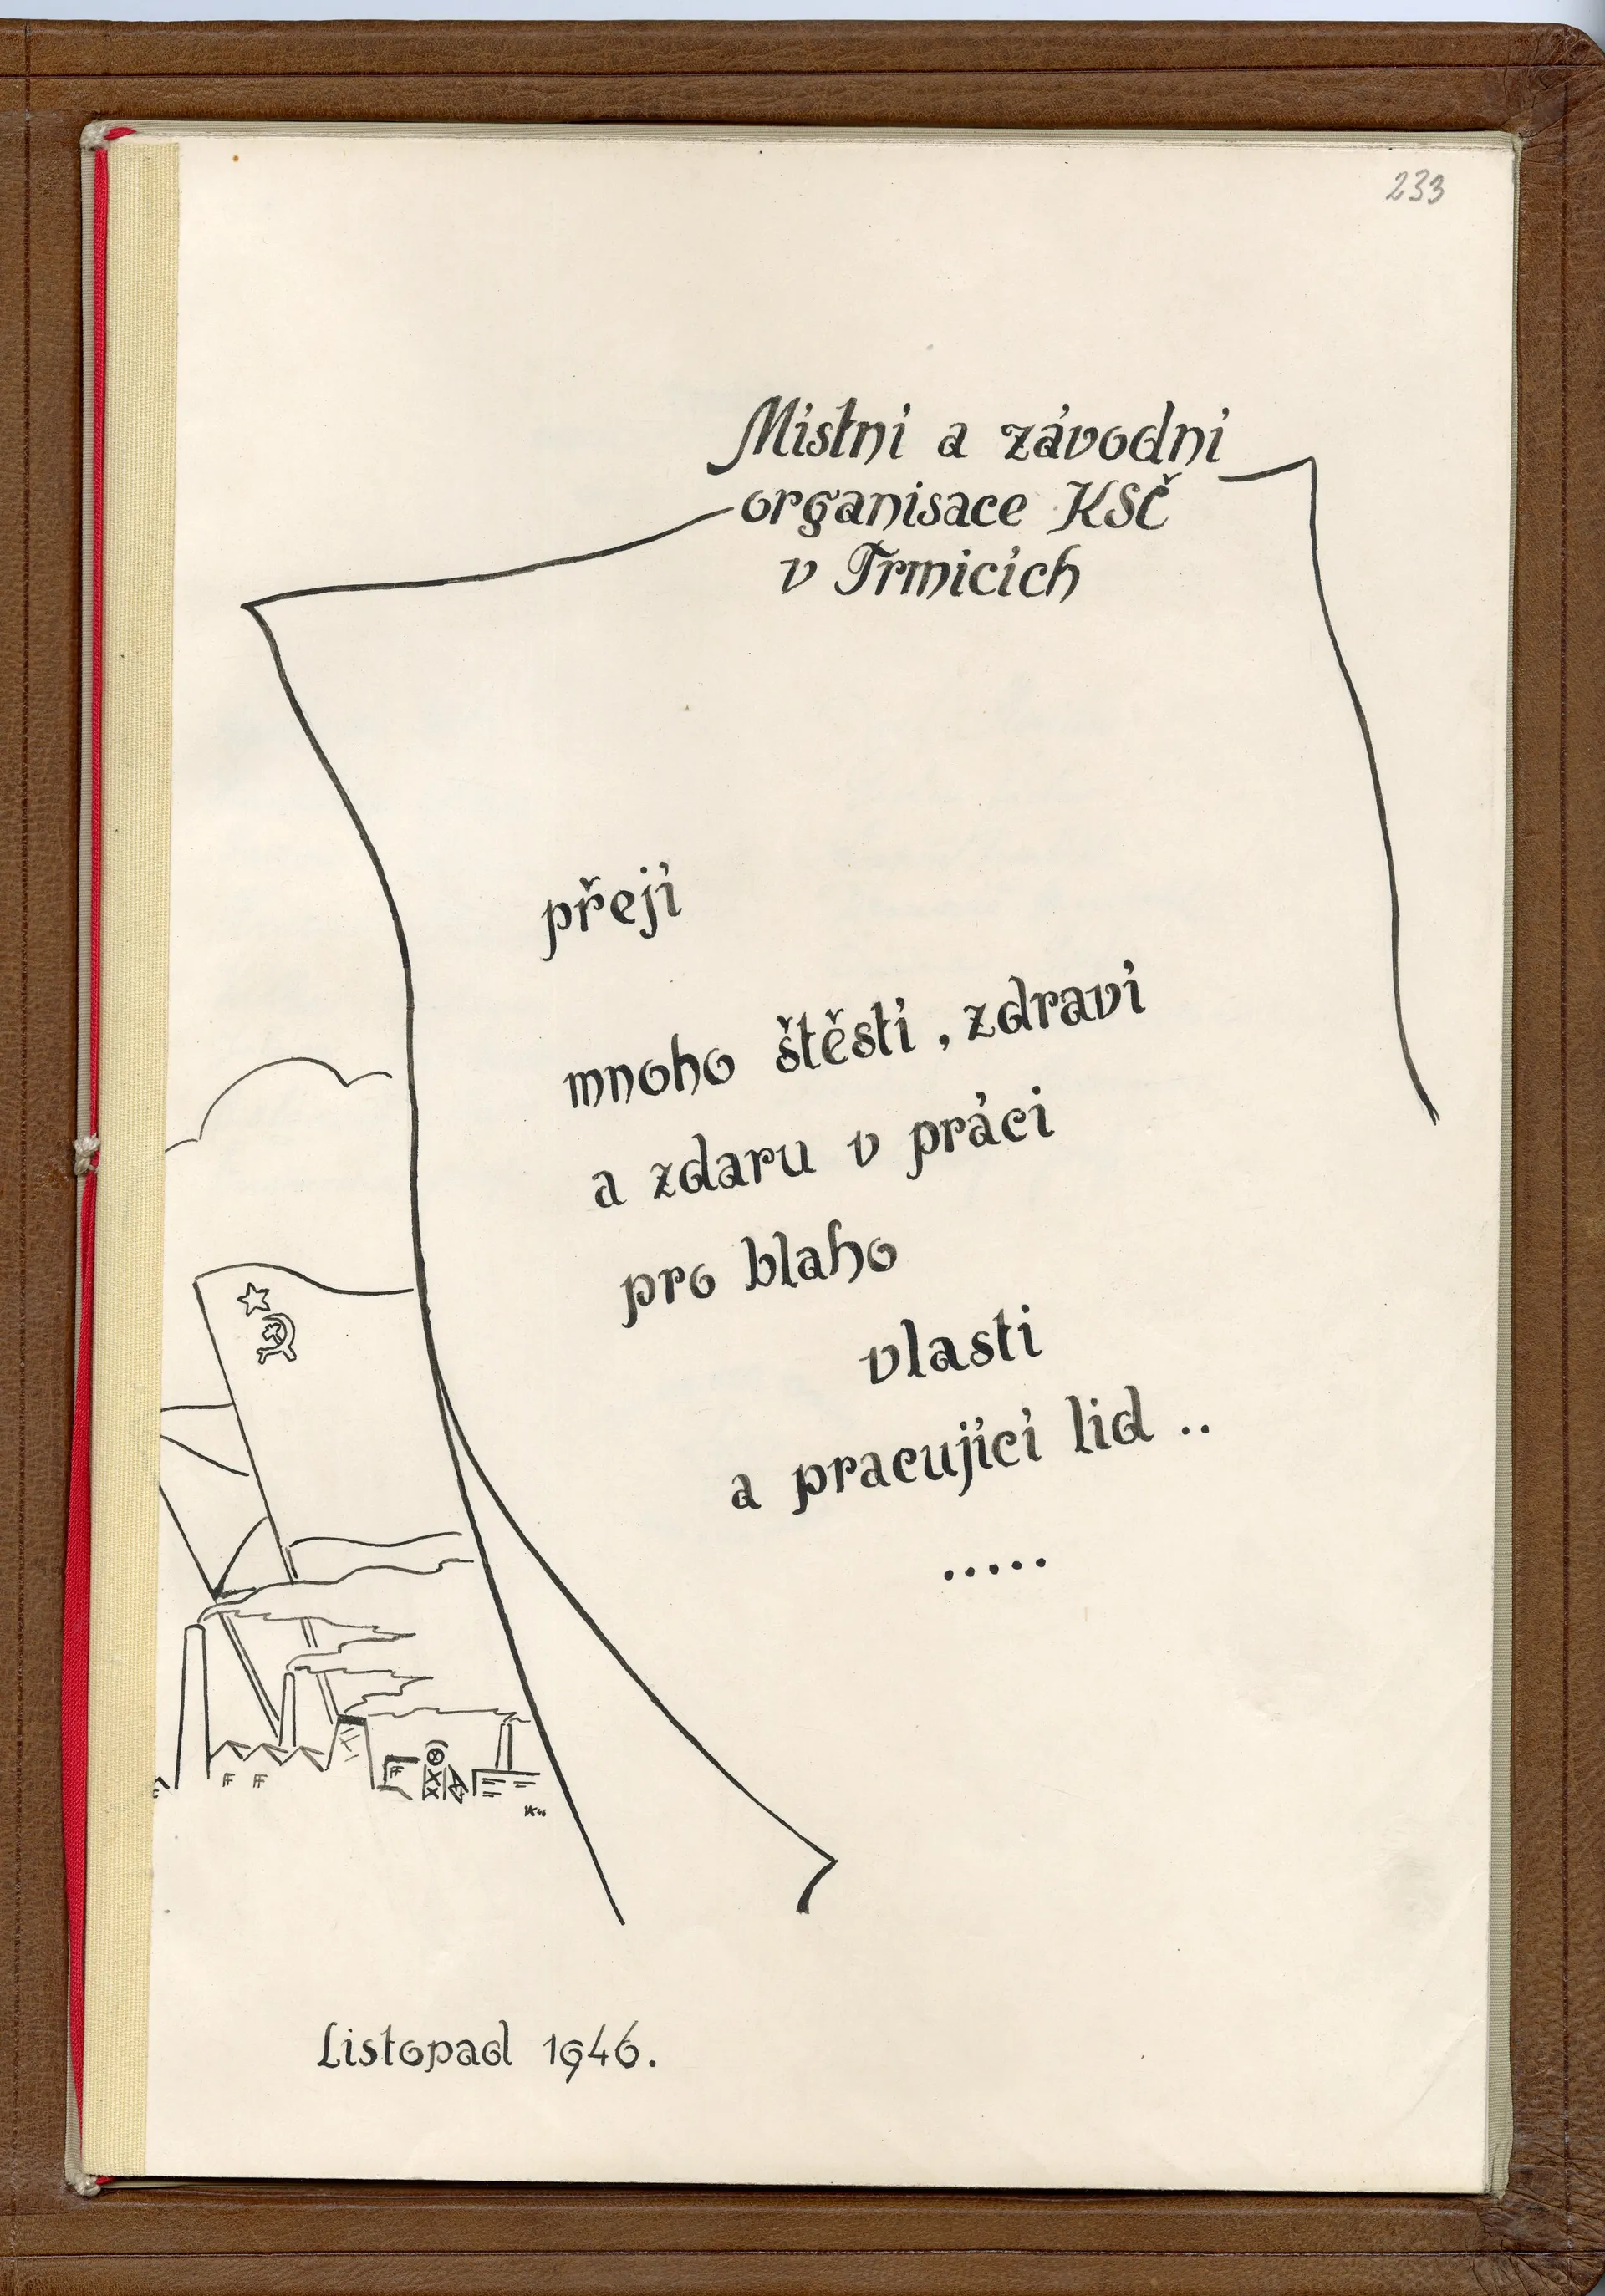 233
Místní a závodní
organisace KSČ
v Trmicích
přejí
mnoho štěstí, zdraví
a zdaru v práci
pro blaho
vlasti
a pracující lid ..
.....
Listopad 1946.